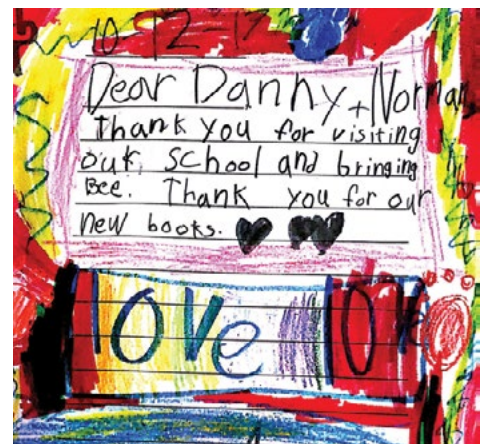 10-12-17
Dear Danny + Norman
Thank you for visiting
our school and bringing
Bee. Thank you for our
new books.
love love